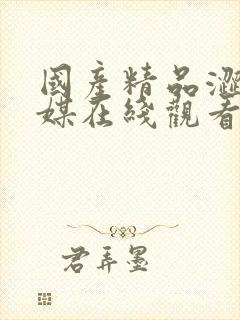 國產精品澀
媒在綫觀看
君弄墨